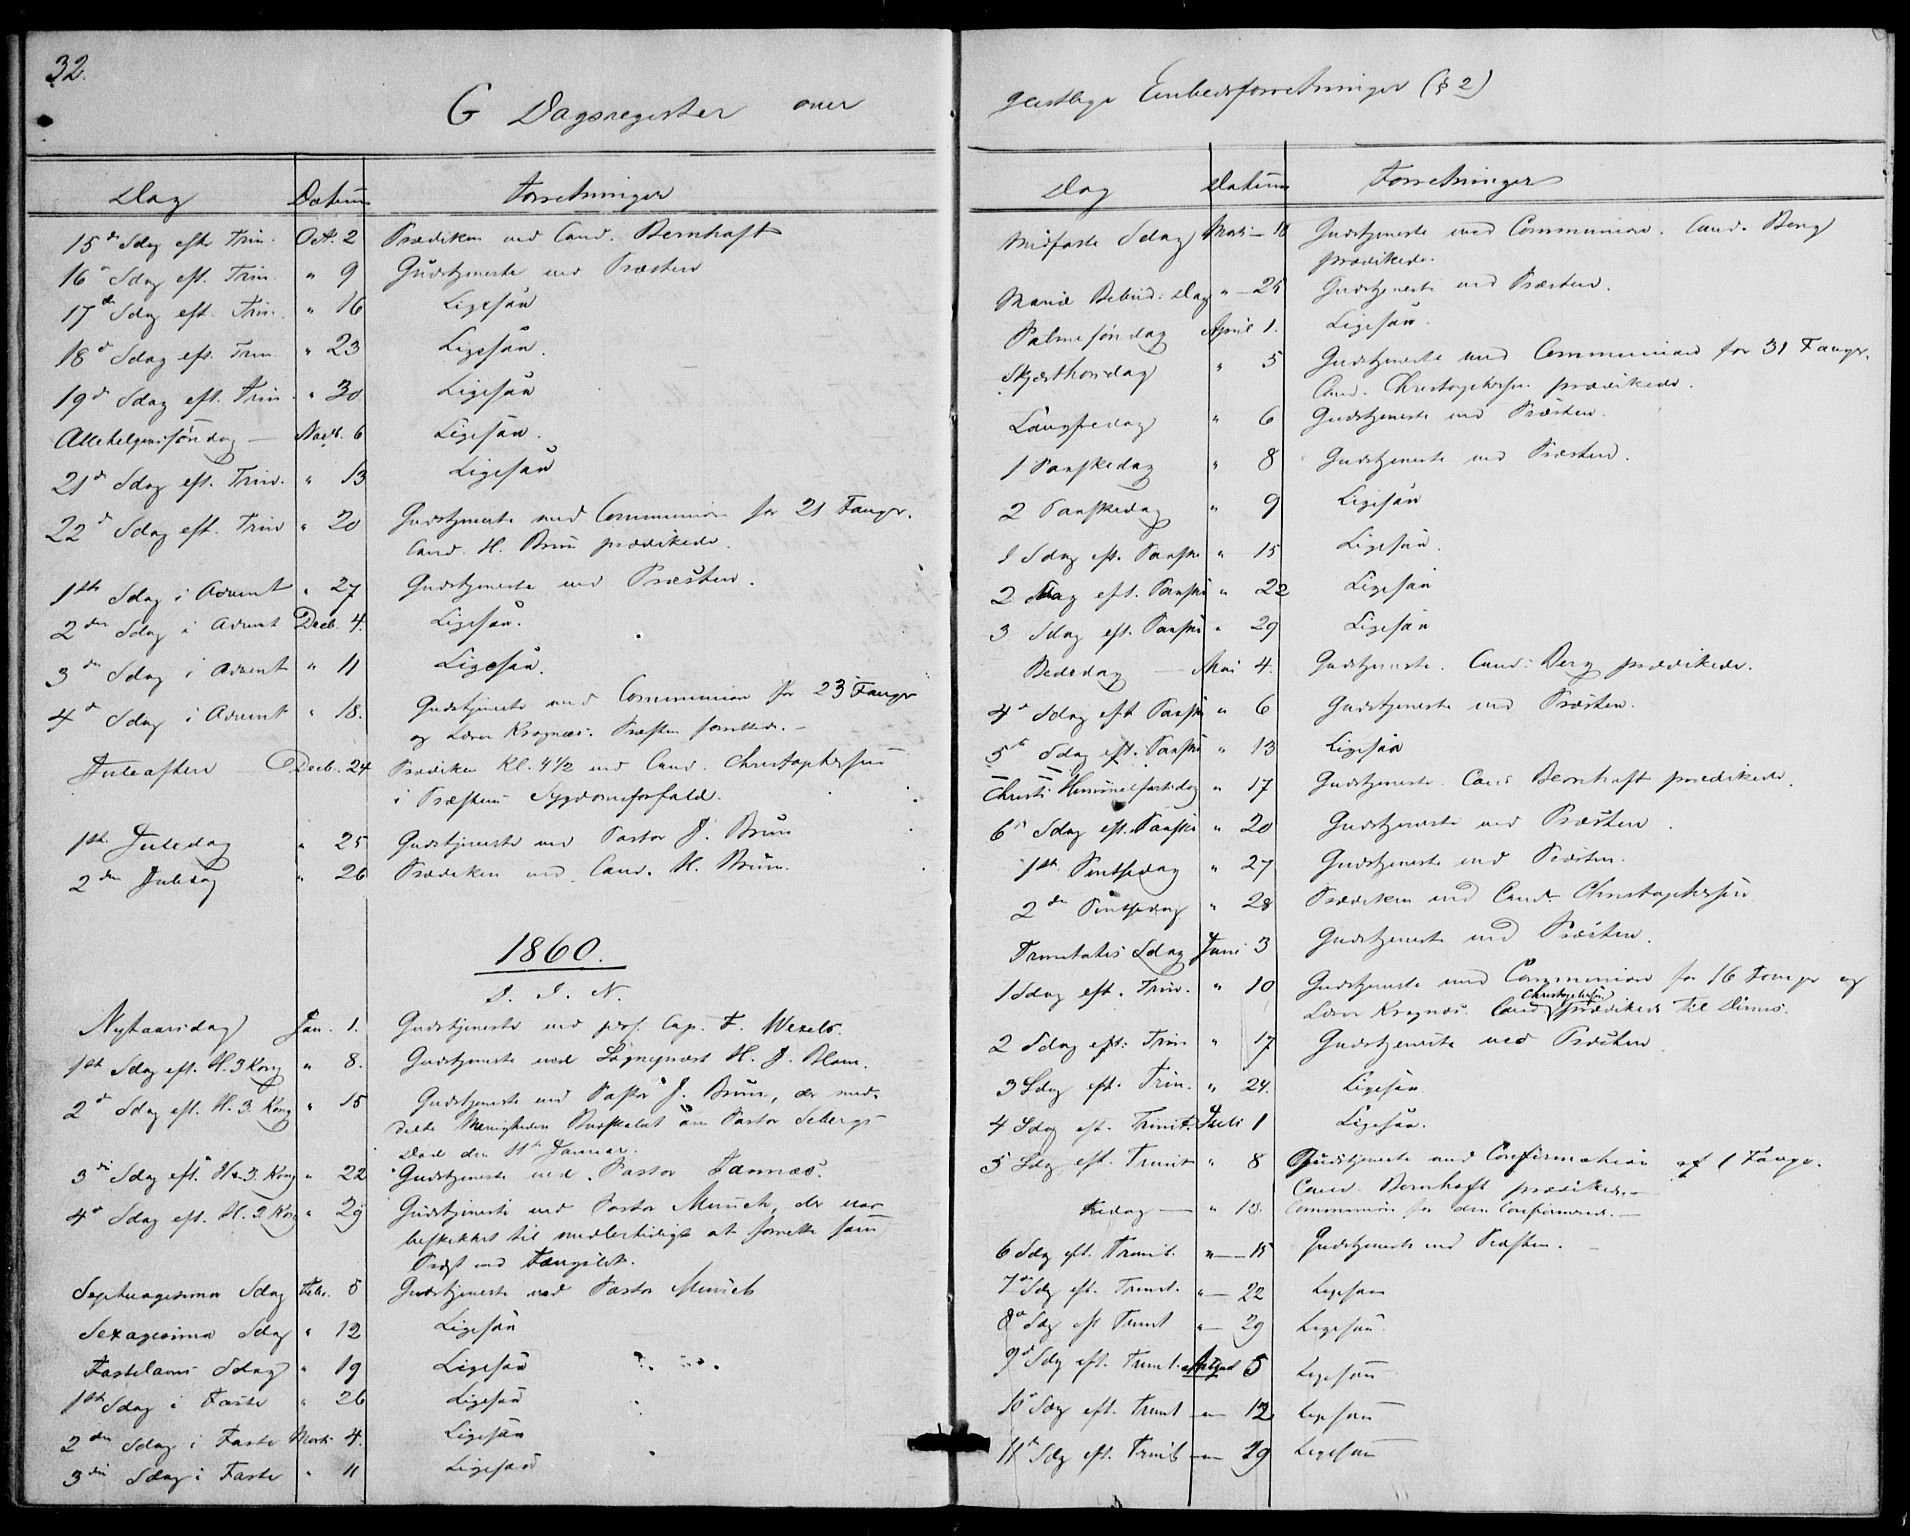 32.
G Dagsregister over
Dag Datum Forretninger
15de Sdag eft. Trin. Oct. 2 Prædiken ved Cand. Bernhoft
16de Sdag eft. Trin. " 9 Gudstjeneste ved Præsten
17de Sdag eft. Trin. " 16 Ligesaa
18de Sdag eft. Trin. " 23 Ligesaa.
19de Sdag eft. Trin. " 30 Ligesaa
Allehelgensöndag — Novb. 6 Ligesaa.
21de Sdag eft. Trin. " 13 Ligesaa
22de Sdag eft. Trin " 20 Gudstjeneste med Communion for 21 Fanger.
Cand. H. Brun prædikede.
1ste Sdag i Advent " 27 Gudstjeneste ved Præsten.
2den Sdag i Advent Decb. 4. Ligesaa.
3die Sdag i Advent " 11 Ligesaa.
4de Sdag i Advent " 18. Gudstjeneste med Communion for 23 Fanger
og Lærer Kragnæs. Præsten forrettede. —
Juleaften Decb. 24 Prædiken Kl. 4 1/2 ved Cand. Christophersen
i Præstens Sygdomsforfald.
1ste Juledag " 25 Gudstjeneste ved Pastor J. Brun
2den Juledag " 26 Prædiken ved Cand. H. Brun.
1860.
I. J. N.
Nytaarsdag Jan. 1. Gudstjeneste ved pers. Cap. F. Wexels.
1ste Sdag eft. H. 3 Kong " 8. Gudstjeneste ved Sognepræst H. J. Blom.
2den Sdag eft. H. 3. Kong " 15 Gudstjeneste ved Pastor J. Brun, der med-
delte Menigheden Budskabet om Pastor Sebergs
Död den 11te Januar.
3die Sdag eft. H. 3. Kong " 22 Gudstjeneste ved Pastor Fannæs.
4de Sdag eft. H. 3 Kong " 29 Gudstjeneste ved Pastor Munch, der var
beskikket til midlertidigt at forrette som
Præst ved Fængslet.
Septuagesima Sdag Febr. 5 Gudstjeneste ved Pastor Munch
Sexagesima Sdag " 12 Ligesaa
Fastelavns Sdag " 19 Ligesaa
1ste Sdag i Faste " 26 Ligesaa
2den Sdag i Faste Marts 4. Ligesaa
3die Sdag i Faste " 11 Ligesaa
geistlige Embedsforretninger (§ 2)
Dag Datum Forretninger
Midfaste Sdag Marts — 18 Gudstjeneste med Communion. Cand. Berg
prædikede.
Mariæ Bebud. Dag " — 25 Gudstjeneste ved Præsten.
Palmesöndag April 1. Ligesaa.
Skjærthorsdag " 5 Gudstjeneste med Communion for 31 Fanger.
Cand. Christophersen prædikede.
Langfredag " 6 Gudstjeneste ved Præsten.
1 Paaskedag " 8 Gudstjeneste ved Præsten.
2 Paaskedag " 9 Ligesaa
1 Sdag eft. Paaske " 15 Ligesaa.
2 Sdag eft. Paaske " 22 Ligesaa
3 Sdag eft. Paaske " 29 Ligesaa
Bededag — Mai 4. Gudstjeneste. Cand. Berg prædikede.
4de Sdag eft Paaske " 6 Gudstjeneste ved Præsten.
5te Sdag eft. Paaske " 13 Ligesaa
Christi Himmelfartsdag " 17 Gudstjeneste. Cand Bernhoft prædikede.
6te Sdag eft. Paaske " 20 Gudstjeneste ved Præsten.
1ste Pintsedag " 27 Gudstjeneste ved Præsten.
2den Pintsedag " 28 Prædiken ved Cand. Christophersen
Trinitatis Sdag Juni 3 Gudstjeneste ved Præsten.
1 Sdag eft. Trin. " 10 Gudstjeneste med Communion for 16 Fanger og
Lærer Kragnæs. Cand. Christophersen prædikede til Dimis.
2 Sdag eft. Trin " 17 Gudstjeneste ved Præsten.
3 Sdag eft. Trin. " 24. Ligesaa
4 Sdag eft. Trinit. Juli 1 Ligesaa.
5 Sdag eft. Trinit " 8 Gudstjeneste med Confirmation af 1 Fange.
Cand. Bernhoft prædikede. —
Fredag — " 13. Communion for den Confirmerede. —
6 Sdag eft. Trinit. " — 15 Gudstjeneste ved Præsten. —
7de Sdag eft. Trinit. " — 22 Ligesaa
8de Sdag eft Trinit " — 29 Ligesaa.
9de Sdag eft. Trinit. August 5 Ligesaa
10de Sdag eft. Trinit — " — 12 Ligesaa
11te Sdag eft. Trinit — " — 19 Ligesaa